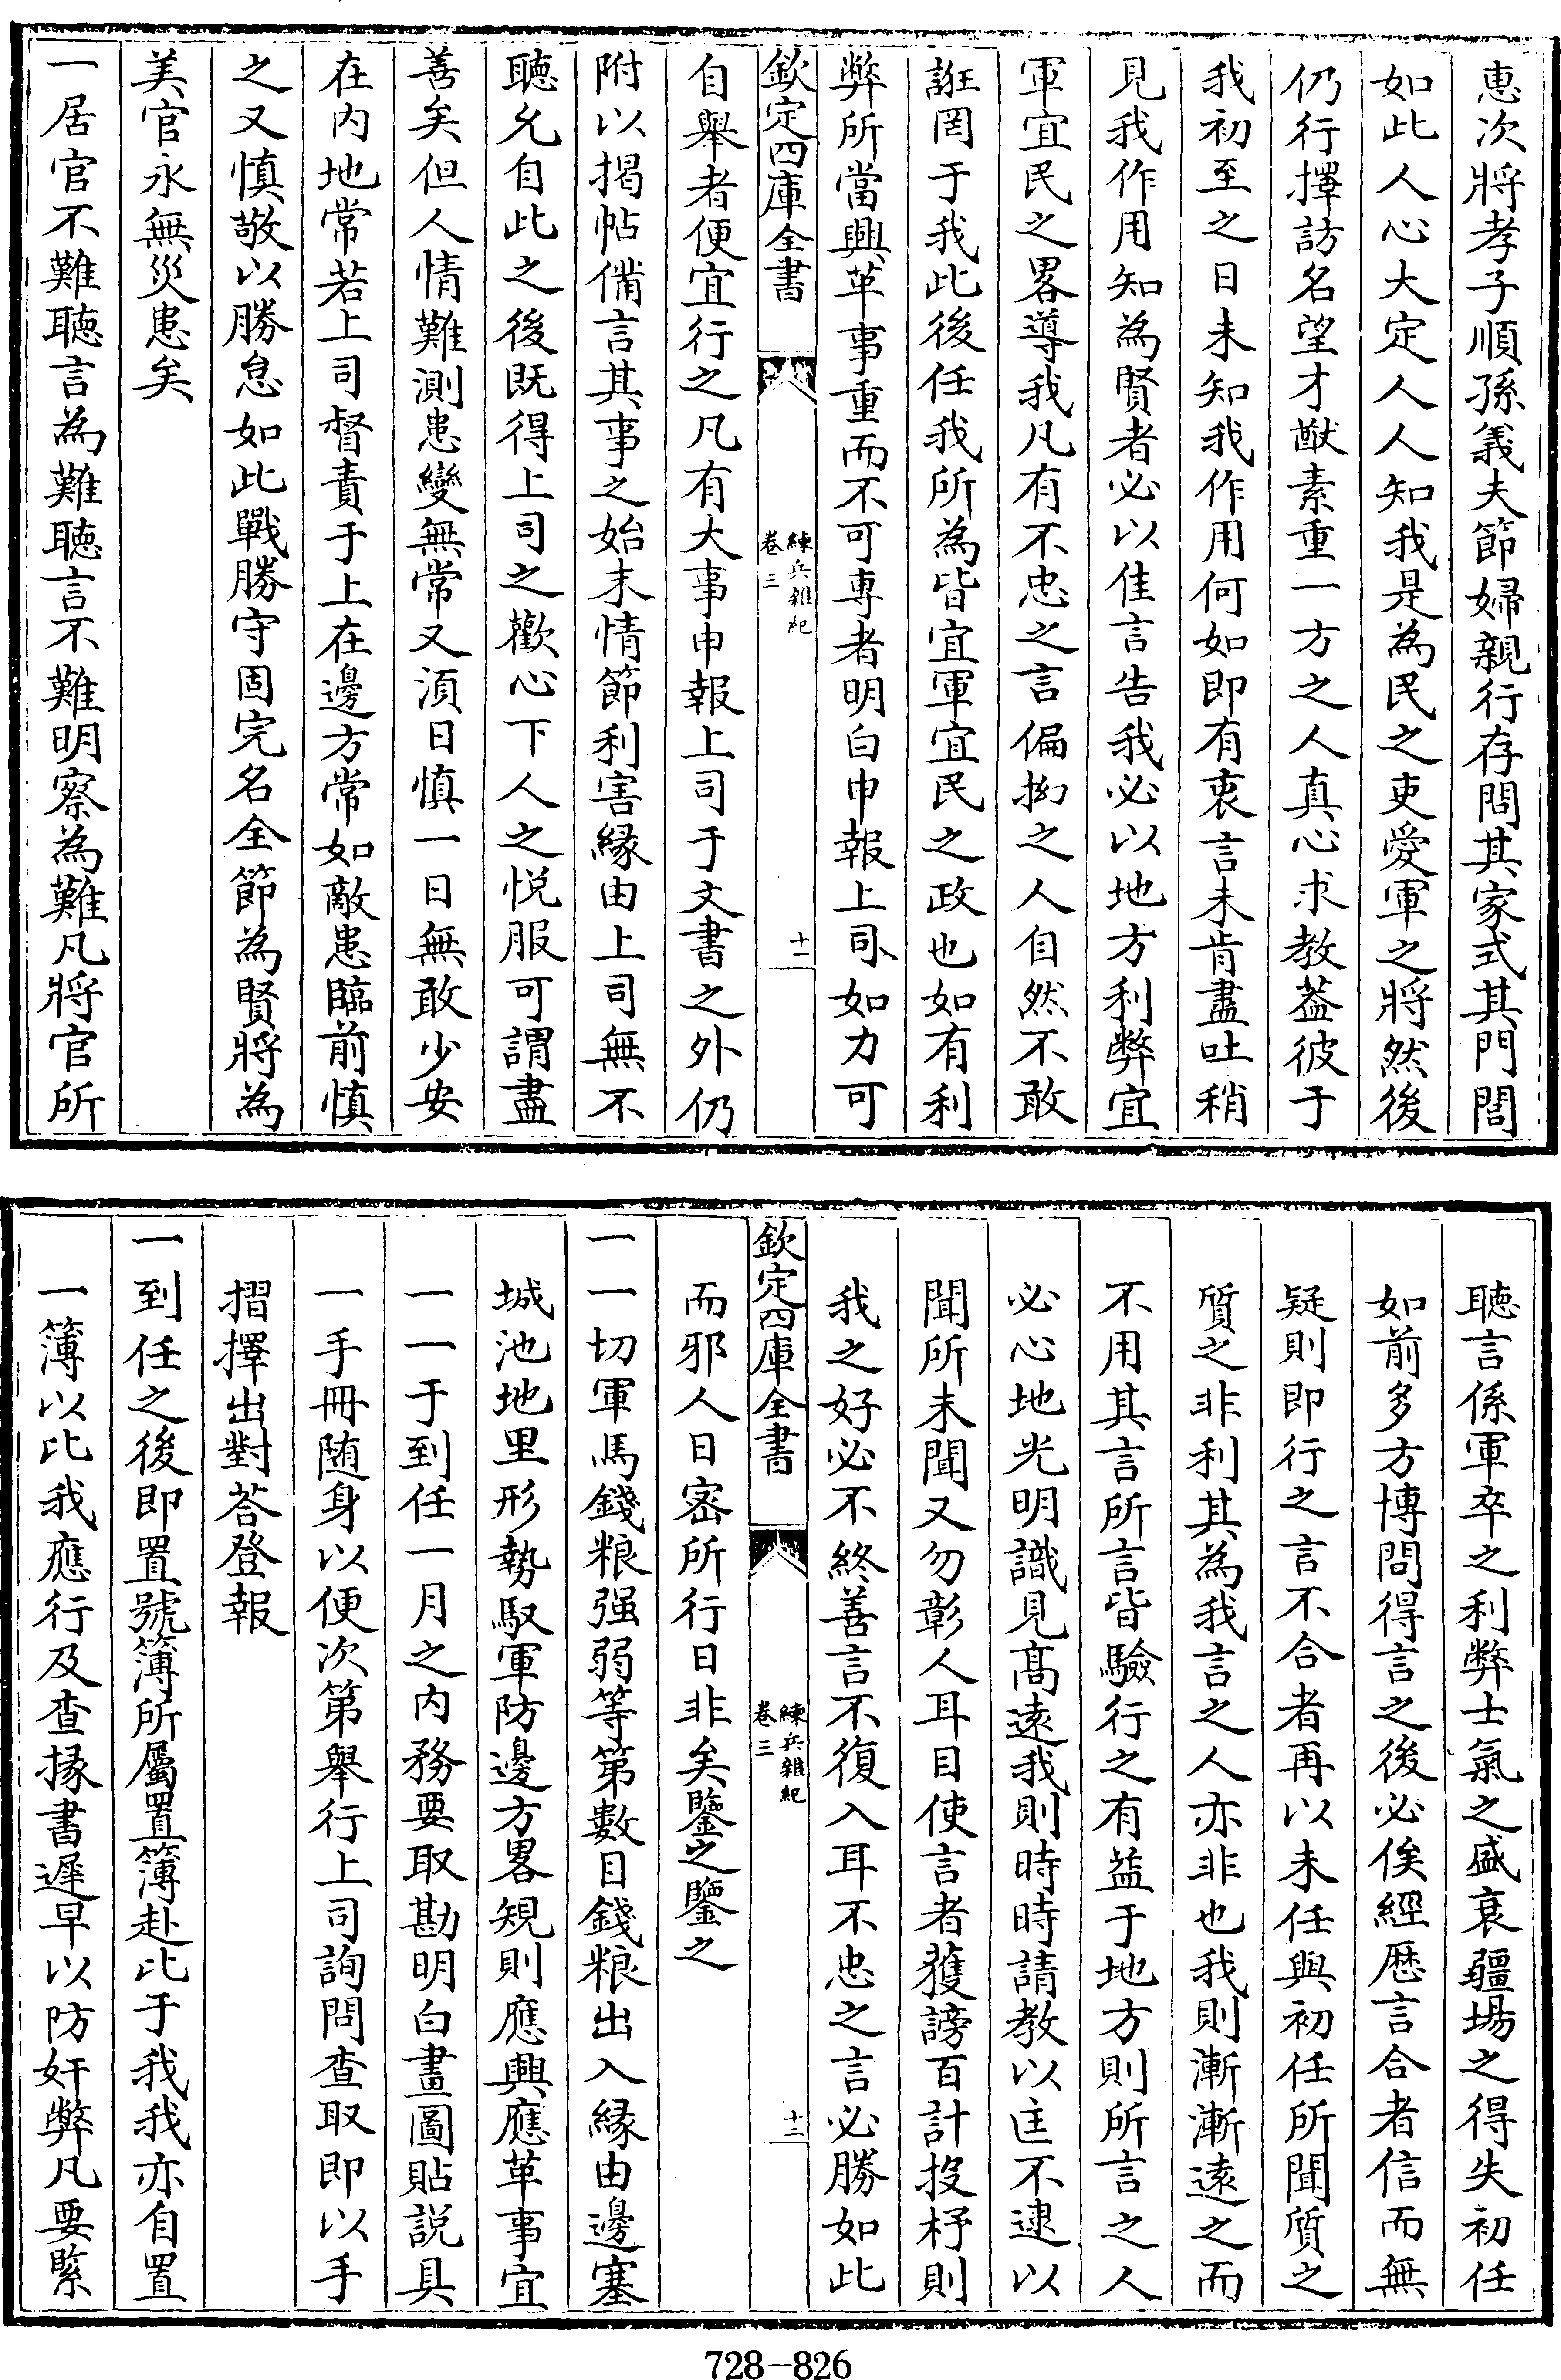 惠次將孝子順孫義夫節婦親行存問其家式其門閭
如此人心大定人人知我是為民之吏愛軍之將然後
仍行擇訪名望才猷素重一方之人真心求教葢彼于
我初至之日未知我作用何如即有衷言未肯盡吐稍
見我作用知為賢者必以佳言告我必以地方利弊宜
軍宜民之畧導我凡有不忠之言偏拗之人自然不敢
誑罔于我此後任我所為皆宜軍宜民之政也如有利
弊所當興革事重而不可專者明白申報上司如力可
欽定四庫全書
練兵雜紀
卷三
十一
自舉者便宜行之凡有大事申報上司于文書之外仍
附以揭帖備言其事之始末情節利害緣由上司無不
聽允自此之後既得上司之歡心下人之悦服可謂盡
善矣但人情難測患變無常又湏日慎一日無敢少安
在内地常若上司督責于上在邊方常如敵患臨前慎
之又慎敬以勝怠如此戰勝守固完名全節為賢將為
美官永無災患矣
一居官不難聽言為難聽言不難明察為難凡將官所
聽言係軍卒之利弊士氣之盛衰疆場之得失初任
如前多方博問得言之後必俟經厯言合者信而無
疑則即行之言不合者再以未任與初任所聞質之
質之非利其為我言之人亦非也我則漸漸遠之而
不用其言所言皆驗行之有益于地方則所言之人
必心地光明識見髙遠我則時時請教以匡不逮以
聞所未聞又勿彰人耳目使言者獲謗百計投杼則
我之好必不終善言不復入耳不忠之言必勝如此
欽定四庫全書
練兵雜紀
卷三
十二
而邪人日密所行日非矣鑒之鑒之
一一切軍馬錢粮强弱等第數目錢粮出入緣由邊塞
城池地里形勢馭軍防邊方畧規則應興應革事宜
一一于到任一月之内務要取勘明白畫圖貼説具
一手冊随身以便次第舉行上司詢問查取即以手
摺擇出對荅登報
一到任之後即置號簿所屬置簿赴比于我我亦自置
一簿以比我應行及查掾書遲早以防奸弊凡要緊
728-826